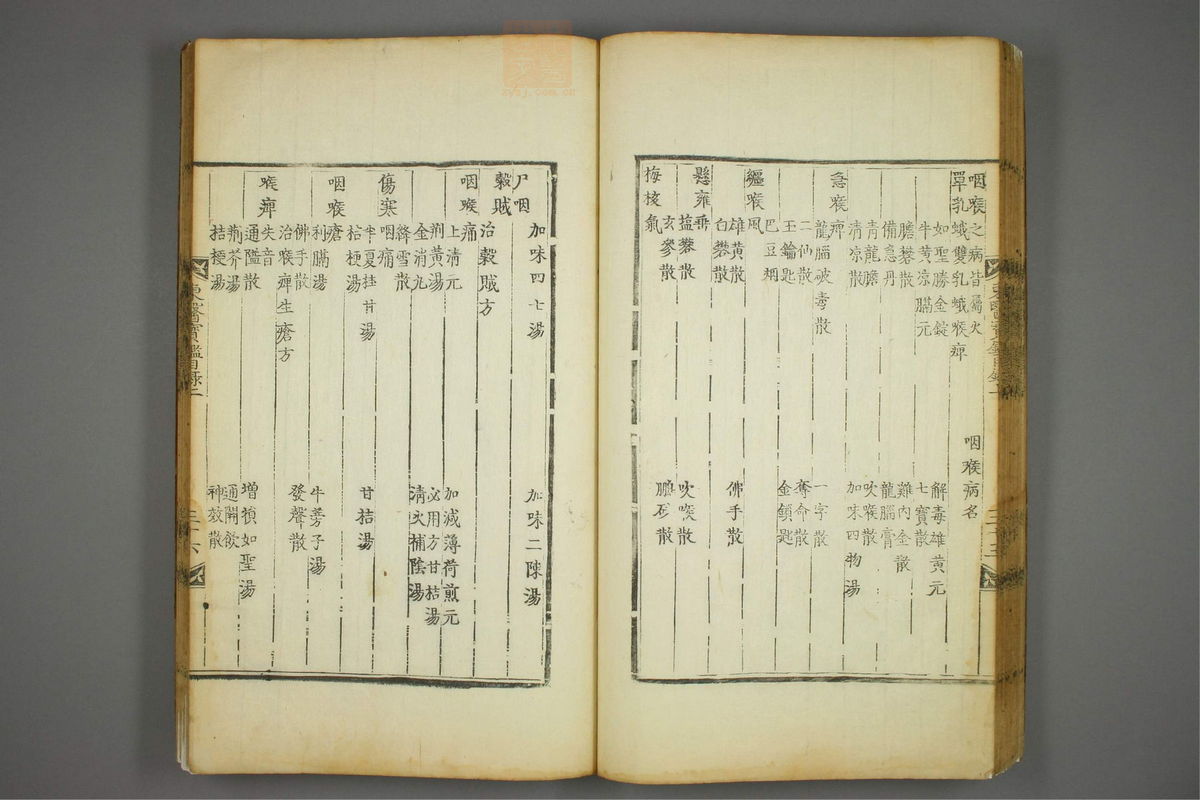 咽喉之病皆屬火
咽喉病名
單乳蛾雙乳蛾喉痺
如聖勝金錠
解毒雄黃元
牛黃凉膈元
七寶散
膽礬散
雞內金散
備急丹
龍腦膏
青龍膽
吹喉散
清凉散
加味四物湯
急喉痺
龍腦破毒散
一字散
二仙散
奪命散
玉鑰匙
金鎖匙
巴豆烟
纏喉風
雄黃散
佛手散
白礬散
懸雍垂
塩礬散
吹喉散
玄參散
硼砂散
梅核氣
加味四七湯
加味二陳湯
尸咽
穀賊
治穀賊方
咽喉痛
上清元
加減薄荷煎元
荊黃湯
必用方甘桔湯
金消丸
清火補陰湯
絳雪散
傷寒咽痛
半夏桂甘湯
甘桔湯
桔梗湯
咽喉瘡
利膈湯
牛蒡子湯
佛手散
發聲散
治喉痺生瘡方
喉痺失音
通隘散
增損如聖湯
荊芥湯
通關飲
桔梗湯
神效散
東醫寶鑑目錄二